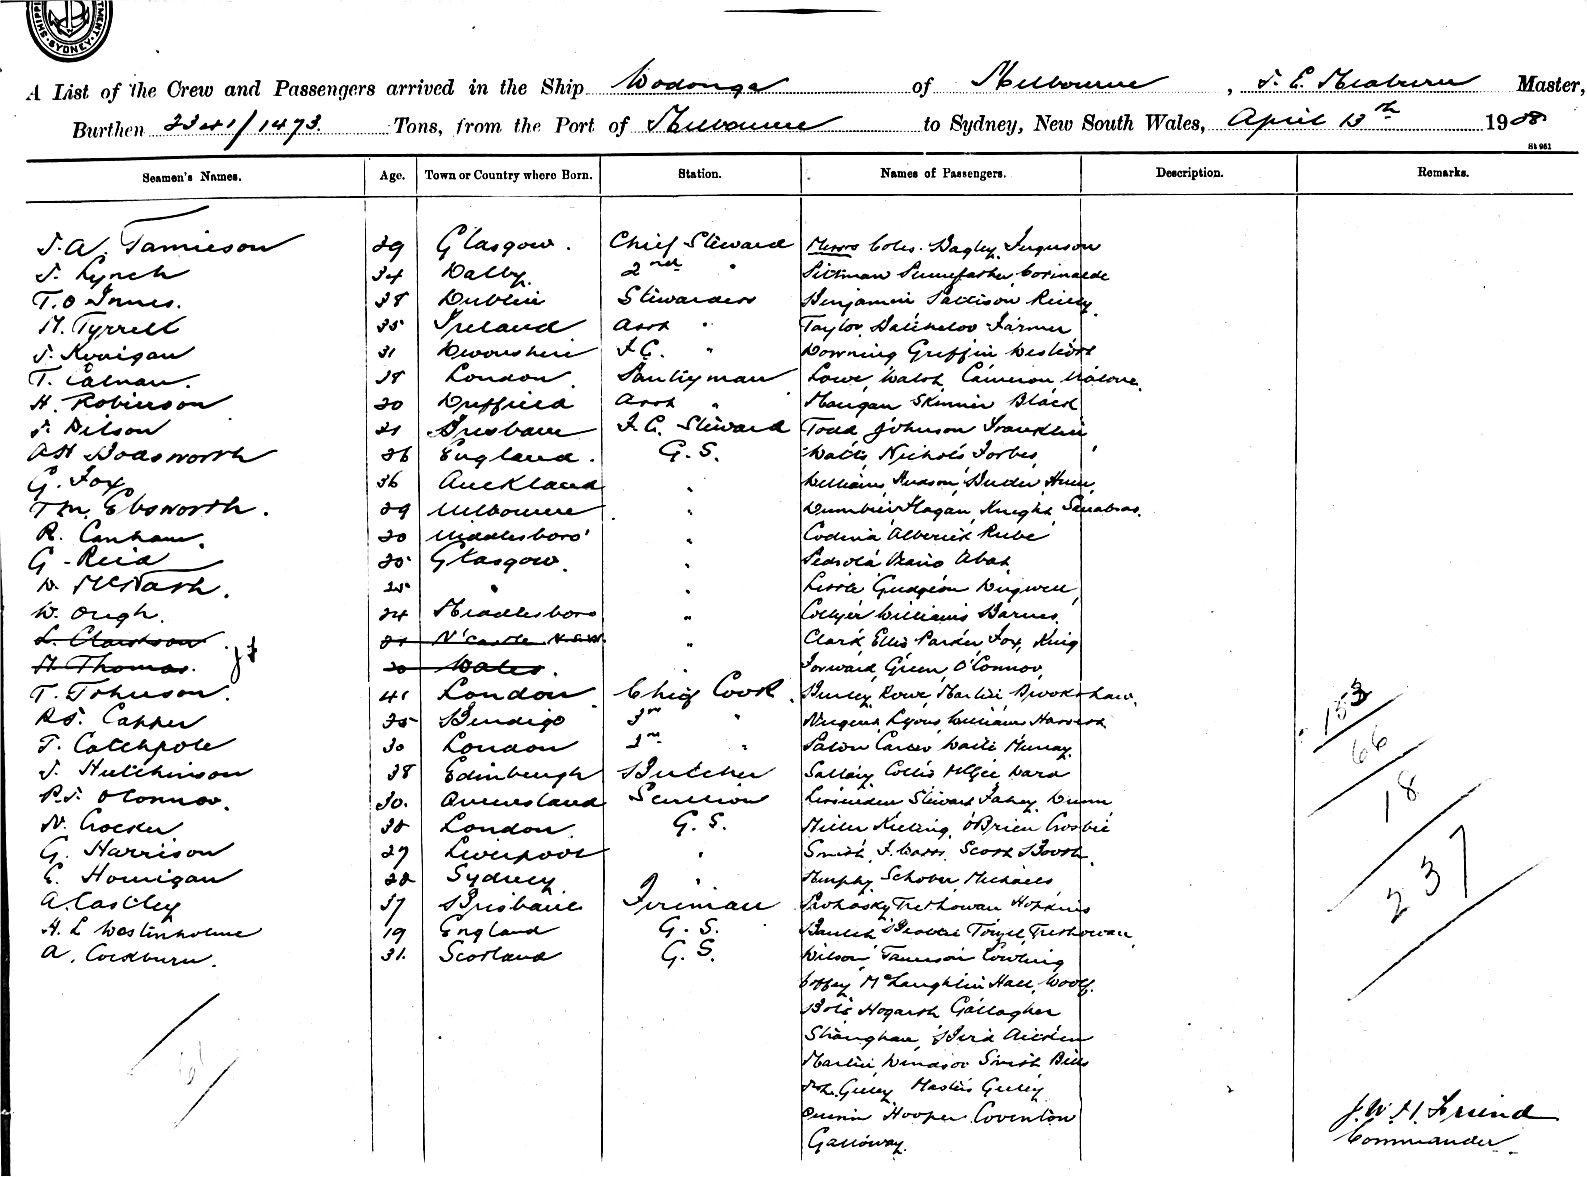 SYDNEY
A List of the Crew and Passengers arrived in the Ship Wodonga of Melbourne, Master,
Burthen 2341/1473 Tons, from the Port of Melbourne to Sydney, New South Wales, April 13th 1908
St 961
Seamen's Names. Age. Town or Country where Born. Station. Names of Passengers. Description. Remarks.
J. A. Jamieson 29 Glasgow. Chief Steward Messrs Coles. Bagley, Ferguson
J. Lynch 34 Dalby. 2nd "
T. O. Innes. 38 Dublin Stewardess Benjamin Pattison Reilly
M. Tyrrell 35 Ireland Asst " Taylor, Batchelor Farmer
31 Devonshire F.C. " Downing Griffin
T. Calnan. 18 London Pantryman Lowe, Walsh, Cameron, Malone
H. Robinson 20 Duffield Asst " Mangan Skinner Black
J. Dilson 21 Brisbane F.C. Steward Todd Johnson Franklin
AH Dodsworth 26 England. G.S. Watts, Nichols Forbes,
G. Fox 36 Auckland " Williams, Hudson, Butler,
T M. Ebsworth. 29 Melbourne " Flagan, Knight,
R. Canham. 20 Middlesboro' " Codina Alberick Rube
G. Reid 25 Glasgow. "
D. McNash. 25 " " Little Gudgeon Dugwell,
W. Ough. 24 Middlesboro " Collyer Williams Barnes,
L. Clarkson 21 N'Castle N.S.W. " Clark Ellis Parker Fox, King
H. Thomas. 20 Wales. " Forward, Green, O'Connor,
T. Johnson. 41 London Chief Cook. Rowe, Martin, Brookshaw,
R.J. Capper 25 Bendigo " Nugent, Lyons, William
T. Catchpole 30 London 3rd " Paton Carter Waite Murray
J. Hutchinson 38 Edinburgh Butcher Collis McGee Ward
R.J. O'Connor. 30. Queensland Scullion Steward Fahey Dunn
N. Crocker 38 London. G.S. Miller Keeling, O'Brien Crosbie
G. Harrison 27 Liverpool " Smith, J. Watts Scott Booth.
E. Hourigan 28 Sydney " Murphy, Michaels
A. Castley 37 Brisbane Fireman Trethowan Hopkins
H. L Westinholme 19 England G.S. Trethowan,
A. Coldburn. 31. Scotland G.S. Wilson Jameson Cowling
Coffey McLaughlin Hall, Woolf.
Hogarth Gallagher
Bird Aitken
Martin, Windsor Smith Bills
Guley Master Guley
Hooper Coventon
Galloway.
153
66
18
237
J. W. H. Friend
Commander